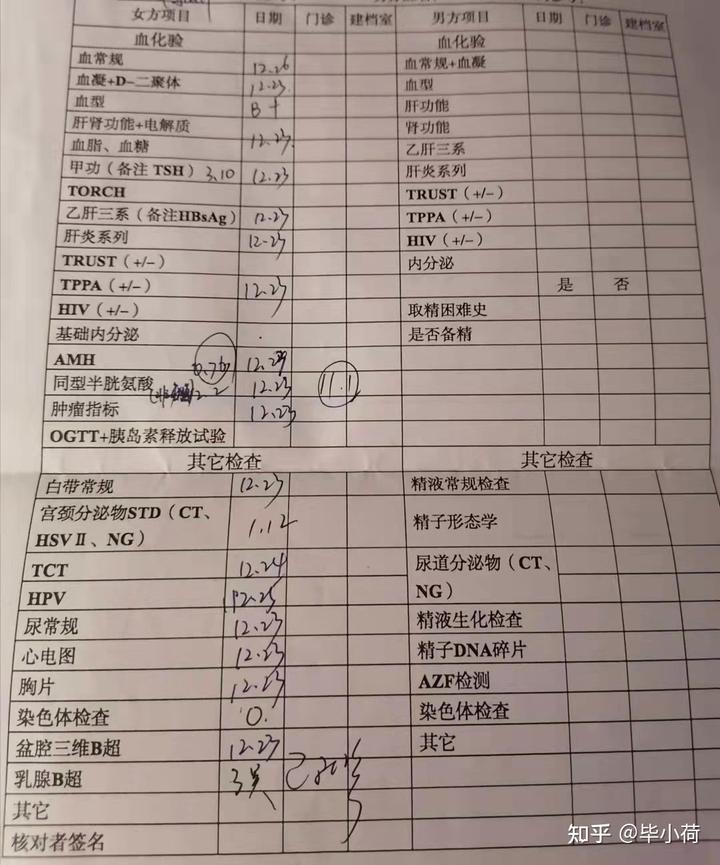 女方项目 日期 门诊 建档室 男方项目 日期 门诊 建档室
血化验 血化验
血常规 12.26 血常规+血凝
血凝+D-二聚体 12.23 血型
血型 B+ 肝功能
肝肾功能+电解质 肾功能
血脂、血糖 12.23 乙肝三系
甲功（备注 TSH）3.10 12.23 肝炎系列
TORCH TRUST（+/-）
乙肝三系（备注HBsAg） 12.23 TPPA（+/-）
肝炎系列 12.23 HIV（+/-）
TRUST（+/-） 内分泌
TPPA（+/-） 12.23 是 否
HIV（+/-） 取精困难史
基础内分泌 是否备精
AMH 6.76
同型半胱氨酸 12.23 11.1
肿瘤指标 12.2 12.23
OGTT+胰岛素释放试验
其它检查 其它检查
白带常规 12.23 精液常规检查
宫颈分泌物STD（CT、 1.12 精子形态学
HSVⅡ、NG）
TCT 12.24 尿道分泌物（CT、
HPV 12.25 NG）
尿常规 12.23 精液生化检查
心电图 12.23 精子DNA碎片
胸片 12.23 AZF检测
染色体检查 0. 染色体检查
盆腔三维B超 12.23 其它
乳腺B超
其它
核对者签名
知乎 @毕小荷